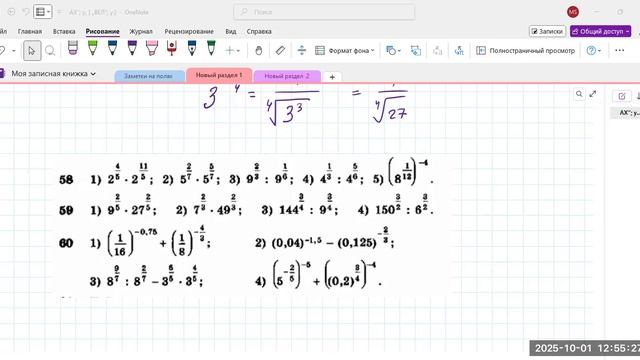 AX°; y, | ,ВЕЛ°; y,! – OneNote
Поиск
MS
Файл Главная Вставка Рисование Журнал Рецензирование Вид Справка
Записки Общий доступ
Формат фона Полностраничный просмотр
Моя записная книжка Заметки на полях Новый раздел 1 Новый раздел 2 +
AX°; y...
3 4 = ⁴√3³ = ⁴√27
58 1) 2^(4/5) · 2^(11/5); 2) 5^(2/7) · 5^(5/7); 3) 9^(2/3) : 9^(1/6); 4) 4^(1/3) : 4^(5/6); 5) (8^(1/12))^(-4).
59 1) 9^(2/5) · 27^(2/5); 2) 7^(2/3) · 49^(2/3); 3) 144^(3/4) : 9^(3/4); 4) 150^(3/2) : 6^(3/2).
60 1) (1/16)^(-0,75) + (1/8)^(-4/3); 2) (0,04)^(-1,5) − (0,125)^(-2/3);
3) 8^(9/7) : 8^(2/7) − 3^(6/5) · 3^(4/5); 4) (5^(-2/5))^(-5) + ((0,2)^(3/4))^(-4).
2025-10-01 12:55:27